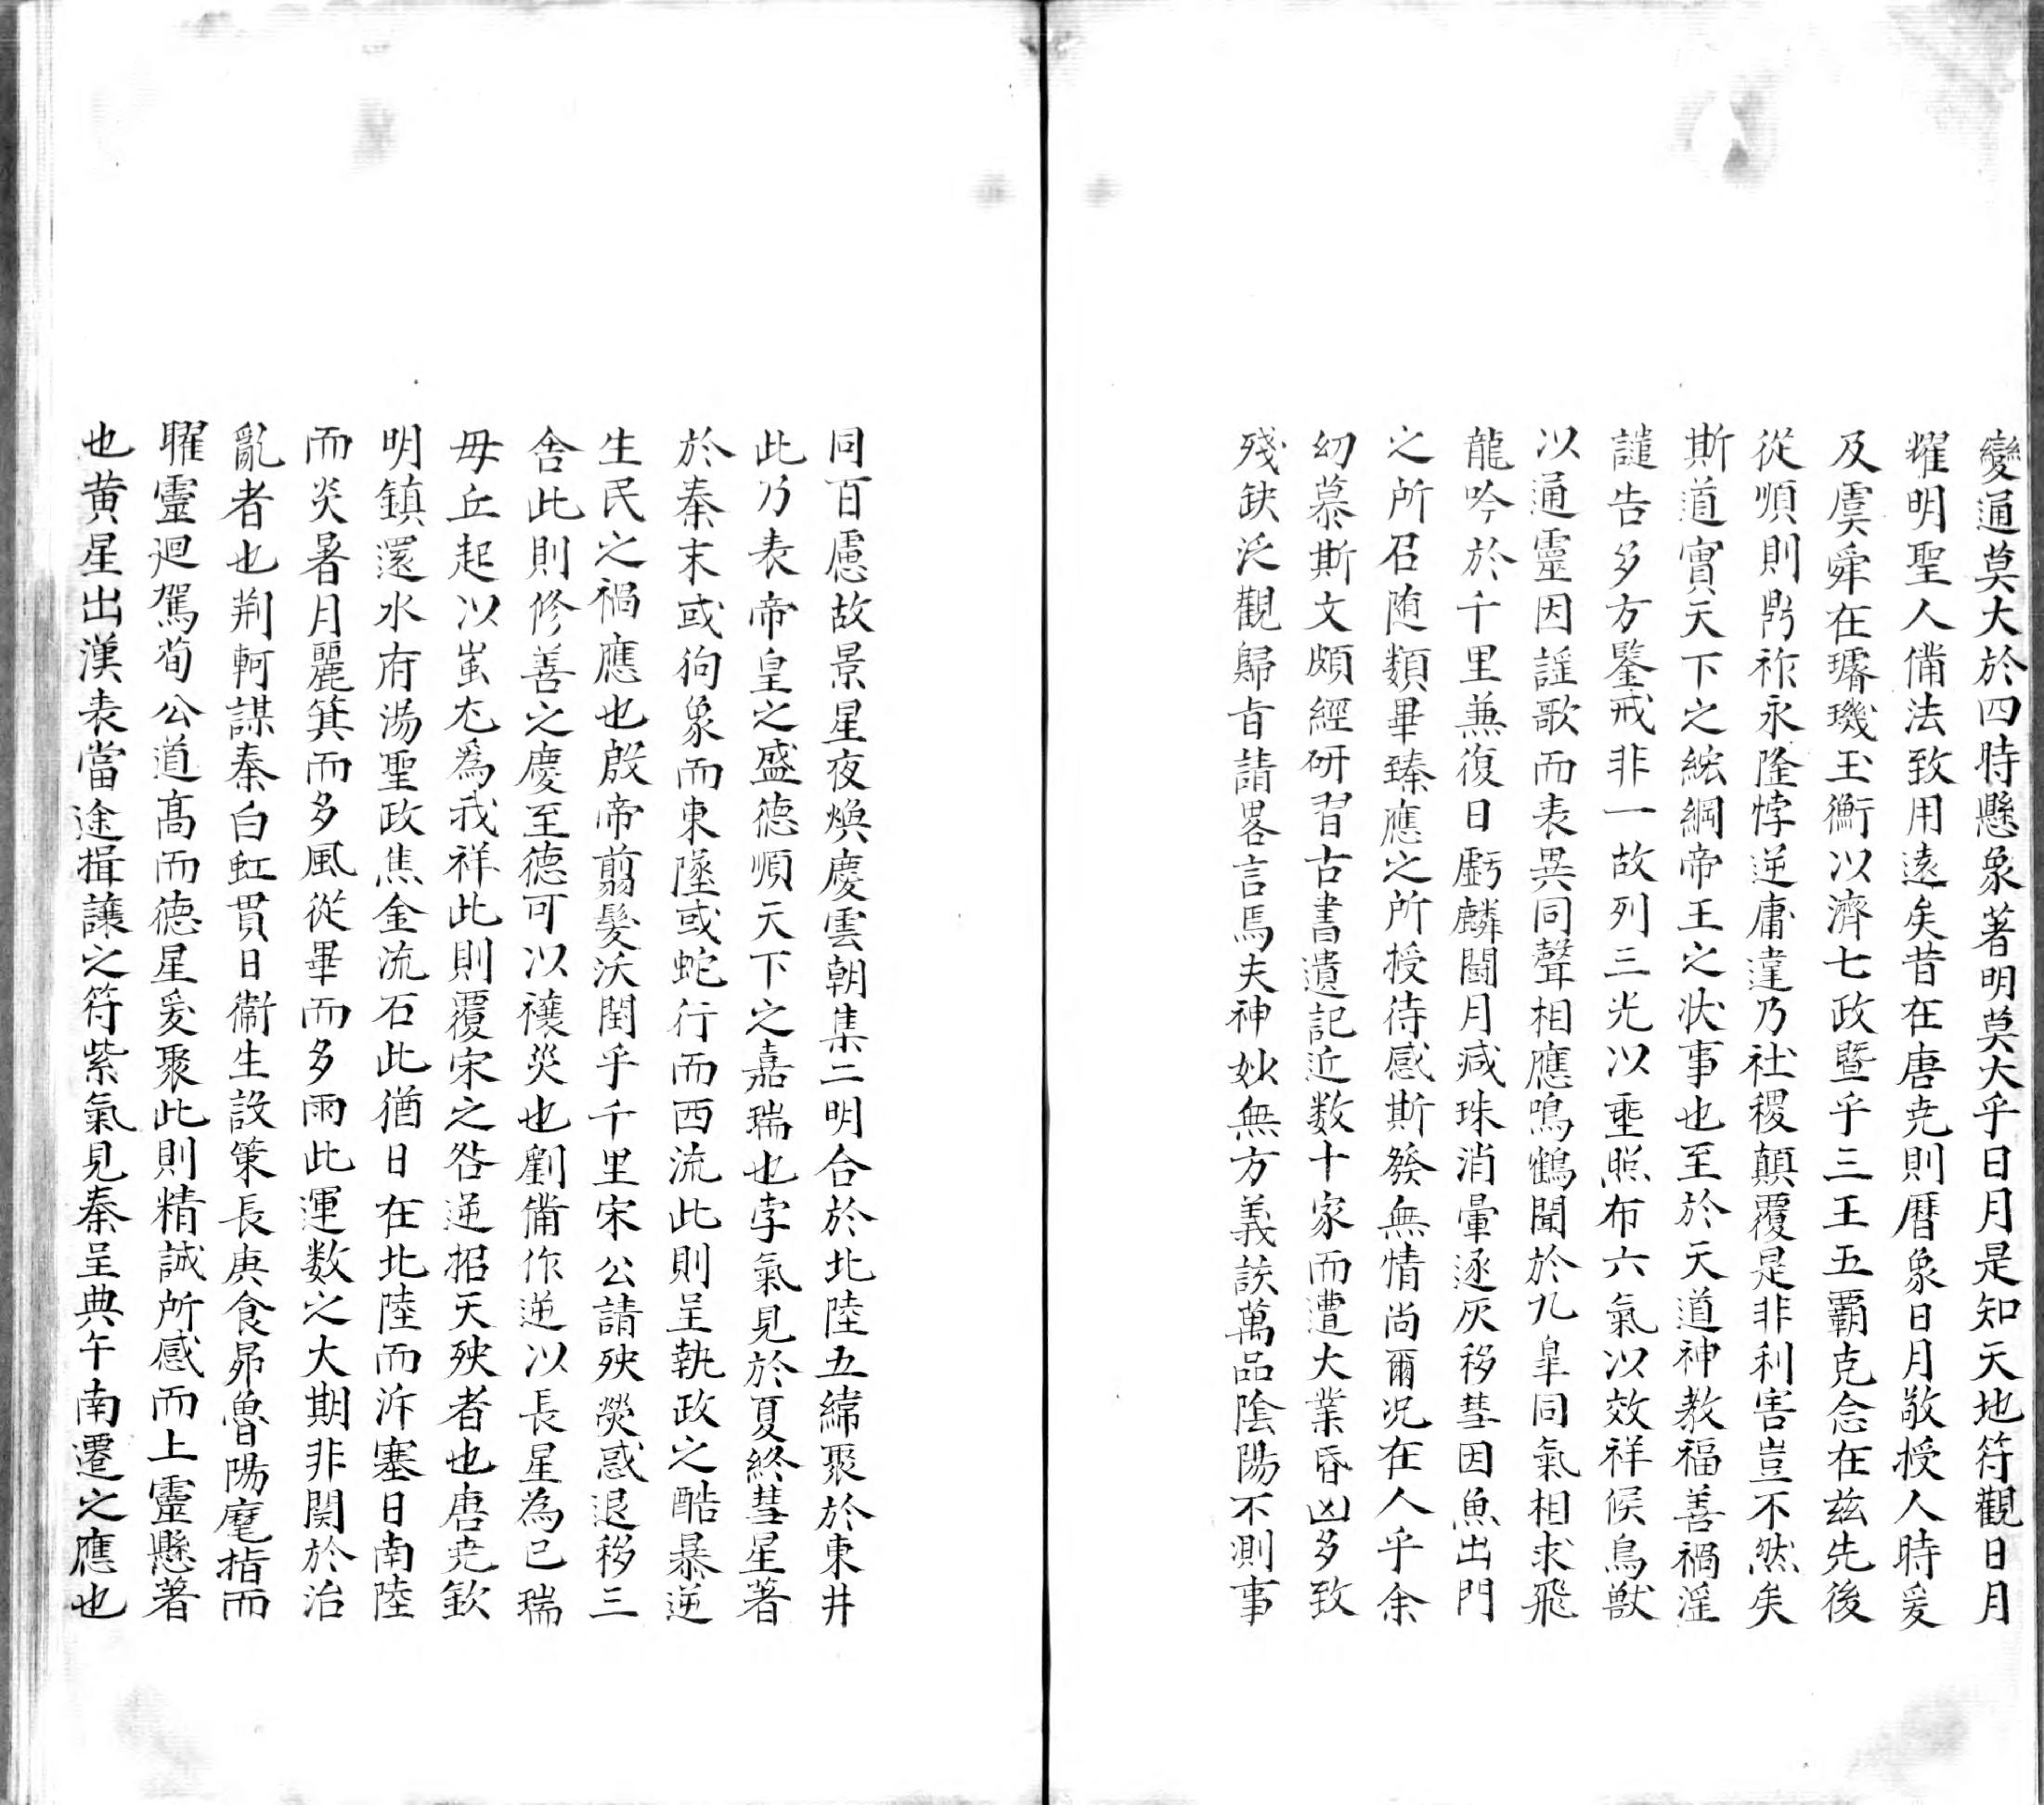 變通莫大於四時懸象著明莫大乎日月是知天地符觀日月
耀明聖人備法致用遠矣昔在唐尭則曆象日月敬授人時爰
及虞舜在璿璣玉衡以濟七政暨乎三王五覇克念在兹先後
從順則鼎祚永隆悖逆庸違乃社稷顛覆是非利害豈不然矣
斯道實天下之綋綱帝王之状事也至於天道神教福善禍淫
譴告多方鑒戒非一故列三光以垂照布六氣以效祥候鳥獣
以通靈因謡歌而表異同聲相應鳴鶴聞於九皐同氣相求飛
龍吟於千里兼復日虧麟鬪月减珠消暈逐灰移彗因魚出門
之所召随類畢臻應之所授待感斯發無情尚爾况在人乎余
幼慕斯文頗經研習古書遺記近数十家而遭大業昏凶多致
殘缺泛觀歸㫖請畧言焉夫神妙無方義該萬品陰陽不測事
同百慮故景星夜煥慶雲朝集二明合於北陸五緯聚於東井
此乃表帝皇之盛徳順天下之嘉瑞也孛氣見於夏終彗星著
於秦末或狗象而東墜或蛇行而西流此則呈執政之酷暴逆
生民之禍應也殷帝翦髮沃閏乎千里宋公請殃熒惑退移三
舎此則修善之慶至徳可以禳災也劉備作逆以長星為已瑞
毋丘起以蚩尤爲我祥此則覆宋之咎逆招天殃者也唐尭欽
明鎮還水府湯聖政焦金流石此猶日在北陸而泝塞日南陸
而炎暑月麗箕而多風從畢而多雨此運数之大期非関於治
亂者也荆軻謀秦白虹貫日衞生設策長庚食昴魯陽麾指而
曜靈迴駕荀公道髙而徳星爰聚此則精誠所感而上靈懸著
也黄星出漢表當途揖讓之符紫氣見秦呈典午南遷之應也